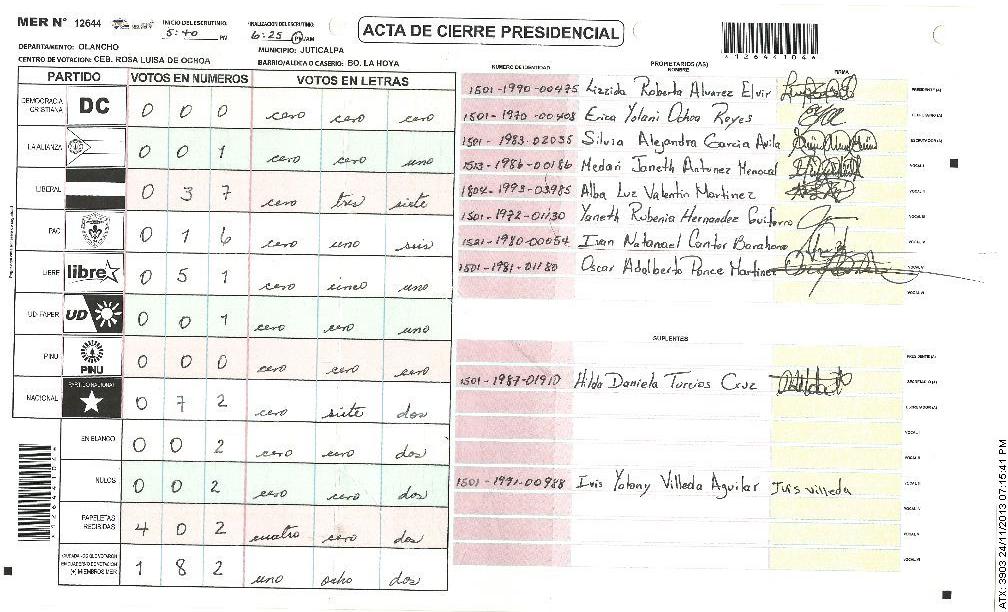 MER N° 12644
INICIO DEL ESCRUTINIO: 5:40 PM
FINALIZACION DEL ESCRUTINIO: 6:25 PM/AM
ACTA DE CIERRE PRESIDENCIAL
*12644104*
DEPARTAMENTO: OLANCHO
MUNICIPIO: JUTICALPA
CENTRO DE VOTACION: CEB. ROSA LUISA DE OCHOA
BARRIO/ALDEA O CASERIO: BO. LA HOYA
PARTIDO VOTOS EN NUMEROS VOTOS EN LETRAS
DEMOCRACIA CRISTIANA DC 0 0 0 cero cero cero
LA ALIANZA 0 0 1 cero cero uno
LIBERAL 0 3 7 cero tres siete
PAC 0 1 6 cero uno seis
LIBRE libre 0 5 1 cero cinco uno
UD-FAPER UD 0 0 1 cero cero uno
PINU PINU 0 0 0 cero cero cero
NACIONAL PARTIDO NACIONAL 0 7 2 cero siete dos
EN BLANCO 0 0 2 cero cero dos
NULOS 0 0 2 cero cero dos
PAPELETAS RECIBIDAS 4 0 2 cuatro cero dos
CIUDADANOS QUE VOTARON EN CUADERNO DE VOTACION (+) MIEMBROS MER 1 8 2 uno ocho dos
NUMERO DE IDENTIDAD PROPIETARIOS (AS) NOMBRE FIRMA
1501-1990-00475 Lizzida Roberta Alvarez Elvir PRESIDENTE (A)
1501-1970-00408 Erica Yolani Ochoa Reyes SECRETARIO (A)
1501-1983-02035 Silvia Alejandra Garcia Avila ESCRUTADOR (A)
1513-1986-00186 Medari Janeth Antunez Menocal VOCAL I
1804-1993-03985 Alba Luz Valentin Martinez VOCAL II
1501-1972-01130 Yaneth Rubenia Hernandez Guiferro VOCAL III
1521-1980-00054 Ivan Natanael Cantor Barahona VOCAL IV
1501-1981-01180 Oscar Adalberto Ponce Martinez VOCAL V
VOCAL VI
SUPLENTES
PRESIDENTE (A)
1501-1987-01910 Hilda Daniela Turcios Cruz SECRETARIO (A)
ESCRUTADOR (A)
VOCAL I
VOCAL II
1501-1991-00988 Ivis Yolany Villeda Aguilar Ivis Villeda VOCAL III
VOCAL IV
VOCAL V
VOCAL VI
*12644104*
ATX: 3903 24/11/2013 07:15:41 PM